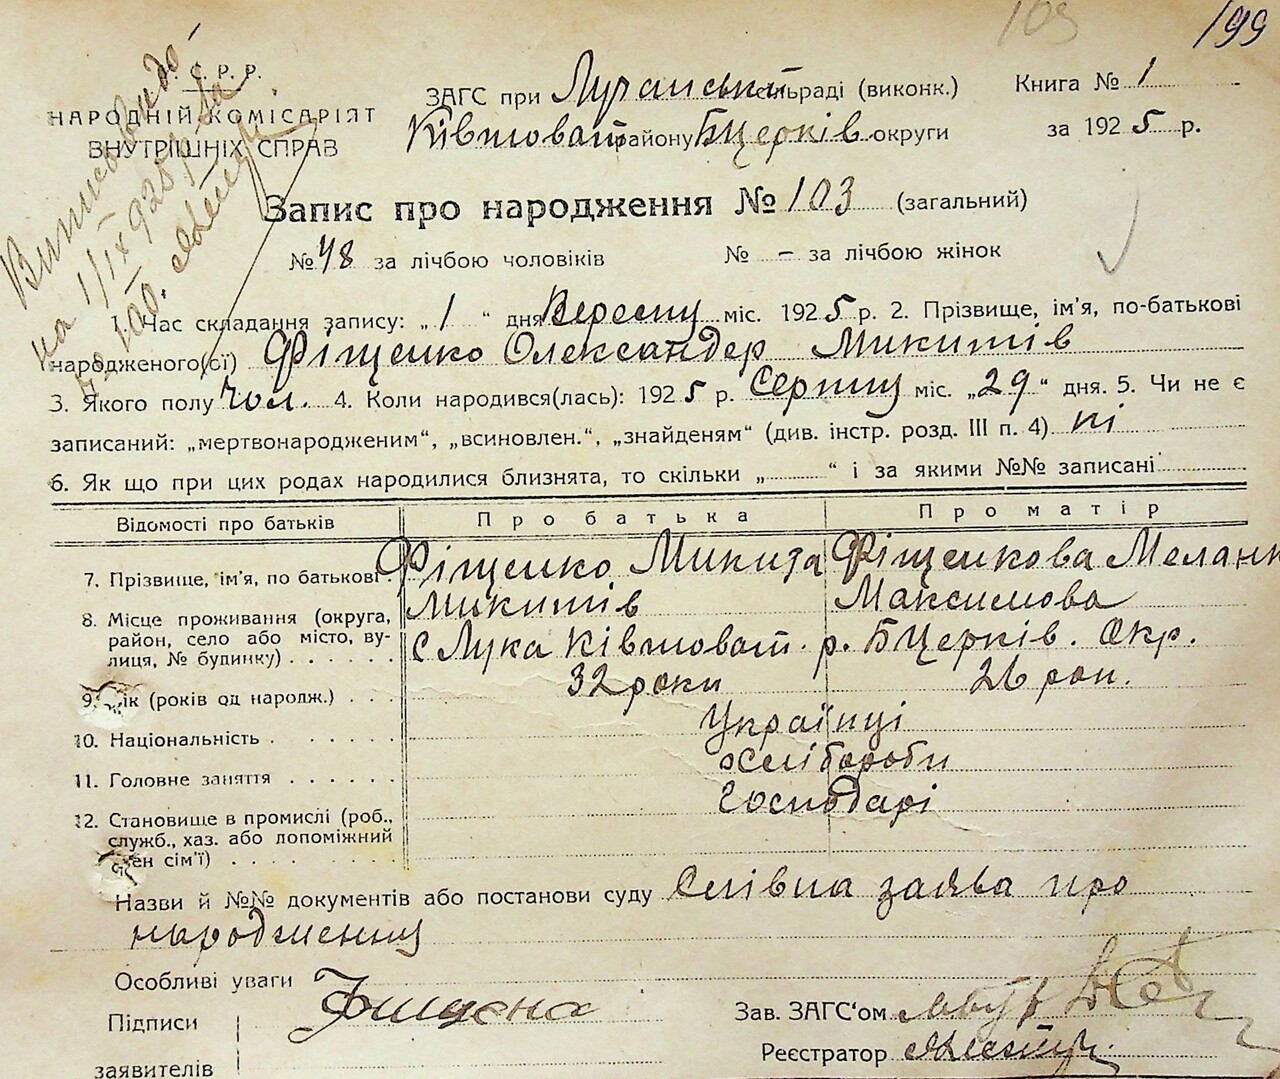 103 199
У. С. Р. Р.
НАРОДНІЙ КОМІСАРІЯТ
ВНУТРІШНІХ СПРАВ
ЗАГС при Лучанській сельраді (виконк.) Книга № 1
Ківшоват району БЦерків округи за 1925 р.
на 1/ІХ 925 р. за
Запис про народження № 103 (загальний)
№ 48 за лічбою чоловіків № – за лічбою жінок
1. Час складання запису: „1“ дня Вересня міс. 1925 р. 2. Прізвище, ім'я, по-батькові
народженого(ої) Фіщенко Олександер Микитів
3. Якого полу чол. 4. Коли народився(лась): 1925 р. Серпня міс. „29“ дня. 5. Чи не є
записаний: „мертвонародженим“, „всиновлен.“, „знайденям“ (див. інстр. розд. III п. 4) ні
6. Як що при цих родах народилися близнята, то скільки „ “ і за якими №№ записані
Відомості про батьків Про батька Про матір
7. Прізвище, ім'я, по батькові Фіщенко Микита Фіщенкова Меланк
Микитів Максимова
8. Місце проживання (округа,
район, село або місто, ву-
лиця, № будинку) с Лука Ківшоват. р. БЦерків. Окр.
9. Вік (років од народж.) 32 роки 26 рок.
10. Національність Українці
11. Головне заняття Хлібороби
12. Становище в промислі (роб.,
служб., хаз. або допоміжний
член сім'ї) Господарі
Назви й №№ документів або постанови суду Слівна заява про
народження
Особливі уваги
Підписи
заявителів
Зав. ЗАГС'ом
Реєстратор